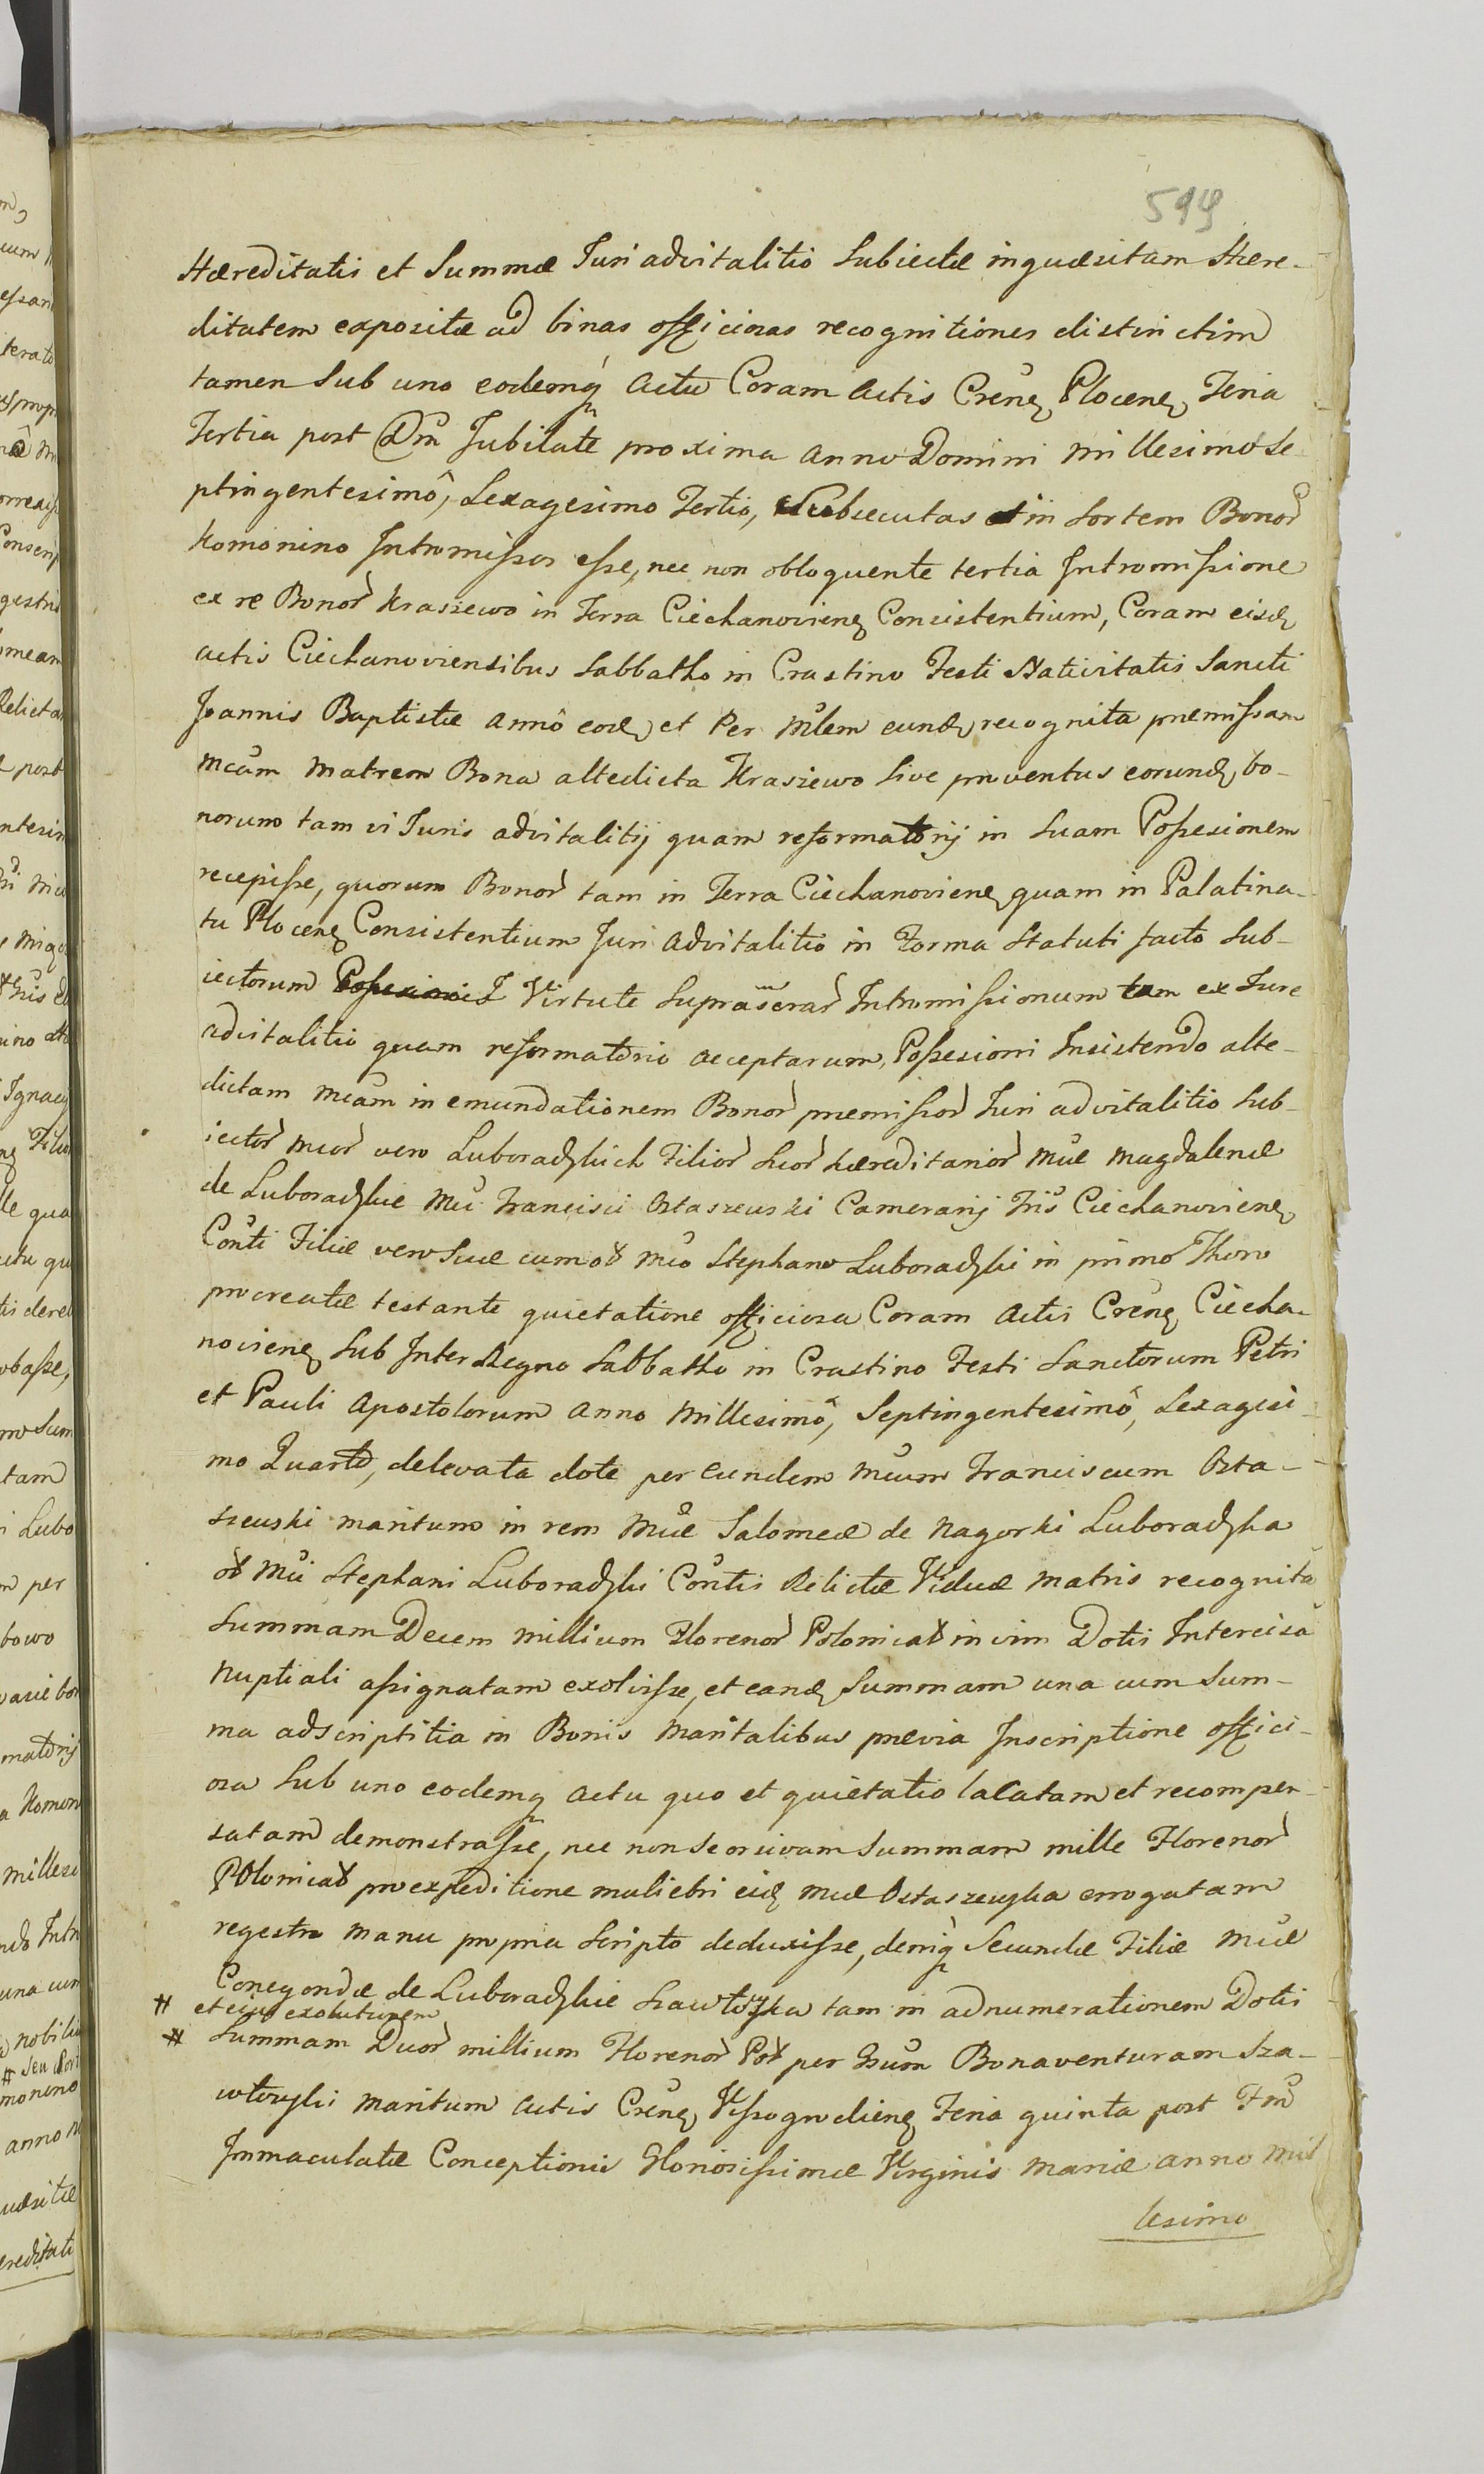 599
Hæreditatis et Summæ Juri advitalitio Subiectæ inquæsitam Hære-
ditatem expositæ ad binas officiosas recognitiones distinctim
tamen Sub uno eodemq́ Actu Coram Actis Crēnę Plocenę Feria
Tertia post Dm̄ Jubilate proxima anno Domini Millesimo Se
ptingentesimô, Sexagesimo Tertio, Subsecutas et in Sortem Bonor̀
Komonino Intromissos esse, nec non obloquente tertia Intromissione
ex re Bonor̀ Kraszewo in Terra Ciechanovienę Consistentium, Coram eisdę
actis Ciechanoviensibus Sabbatho in Crastino Festi Nativitatis Sancti
Joannis Baptistæ annô eodę et Per Mūlem eundę recognita præmissam
Mcām Matrem Bona altedicta Kraszewo sive proventus eorundę bo-
norum tam vi Juris advitalitij quam reformatorij in Suam Possesionem
recepisse, quorum Bonor̀ tam in Terra Ciechanovienę quam in Palatina-
tu Plocenę Consistentium Juri Advitalitio in Forma Statuti facto Sub-
iectorum Virtute Suprāscrar̀ Intromissionum tam ex Jure
advitalitio quam reformatorio acceptarum, Possesioni Insistendo alte-
dictam Mcām in emundationem Bonor̀ præmissor̀ Juri advitalitio Sub-
iector̀ Mcor̀ vero Luboradzkich Filior̀ Suor̀ hæreditarior̀ Mcæ Magdalenæ
de Luboradzkie Mci Francisci Ostaszewski Camerarij Tris Ciechanovienę
Conti Filiæ vero Suæ cum oł Mco Stephano Luboradzki in primo Thoro
procreatæ testante quietatione officiosa Coram Actis Crēnę Ciecha-
novienę Sub Inter Regno Sabbatho in Crastino Festi Sanctorum Petri
et Pauli Apostolorum Anno Millesimô, Septingentesimô, Sexagesi
mo Quarto, delevata dote per eundem Mcum Franciscum Osta-
szewski maritum in rem Mcæ Salomeæ de Nagorki Luboradzka
oł Mci Stephani Luboradzki Contis Relictæ Viduæ Matris recognita
Summam Decem Millium Florenor̀ Polonical in vim Dotis Intercisa
Nuptiali assignatam exolvisse, et eandę Summam una cum Sum-
ma adscriptitia in Bonis Maritalibus prævia Inscriptione offici-
osa Sub uno eodemq́ Actu quo et quietatio locatam et recompen-
satam demonstrasse, nec non Seorsivam Summam mille Florenor̀
Polonical pro expeditione muliebri eidę Mcæ Ostaszewska errogatam
regestro Manu propria Scripto deduxisse, deniq́ Secundæ Filiæ Mcæ
Conegondæ de Luboradzkie Szawłowska tam in adnumerationem Dotis
# et eius exolutionem
# Summam Duor̀ millium Florenor̀ Pol per Gsum Bonaventuram Sza-
włowski Maritum Actis Crēnę Vissogrodienę Feria quinta post Fm̄
Immaculatæ Conceptionis Gloriosissimæ Virginis Mariæ anno Mil
lesimo